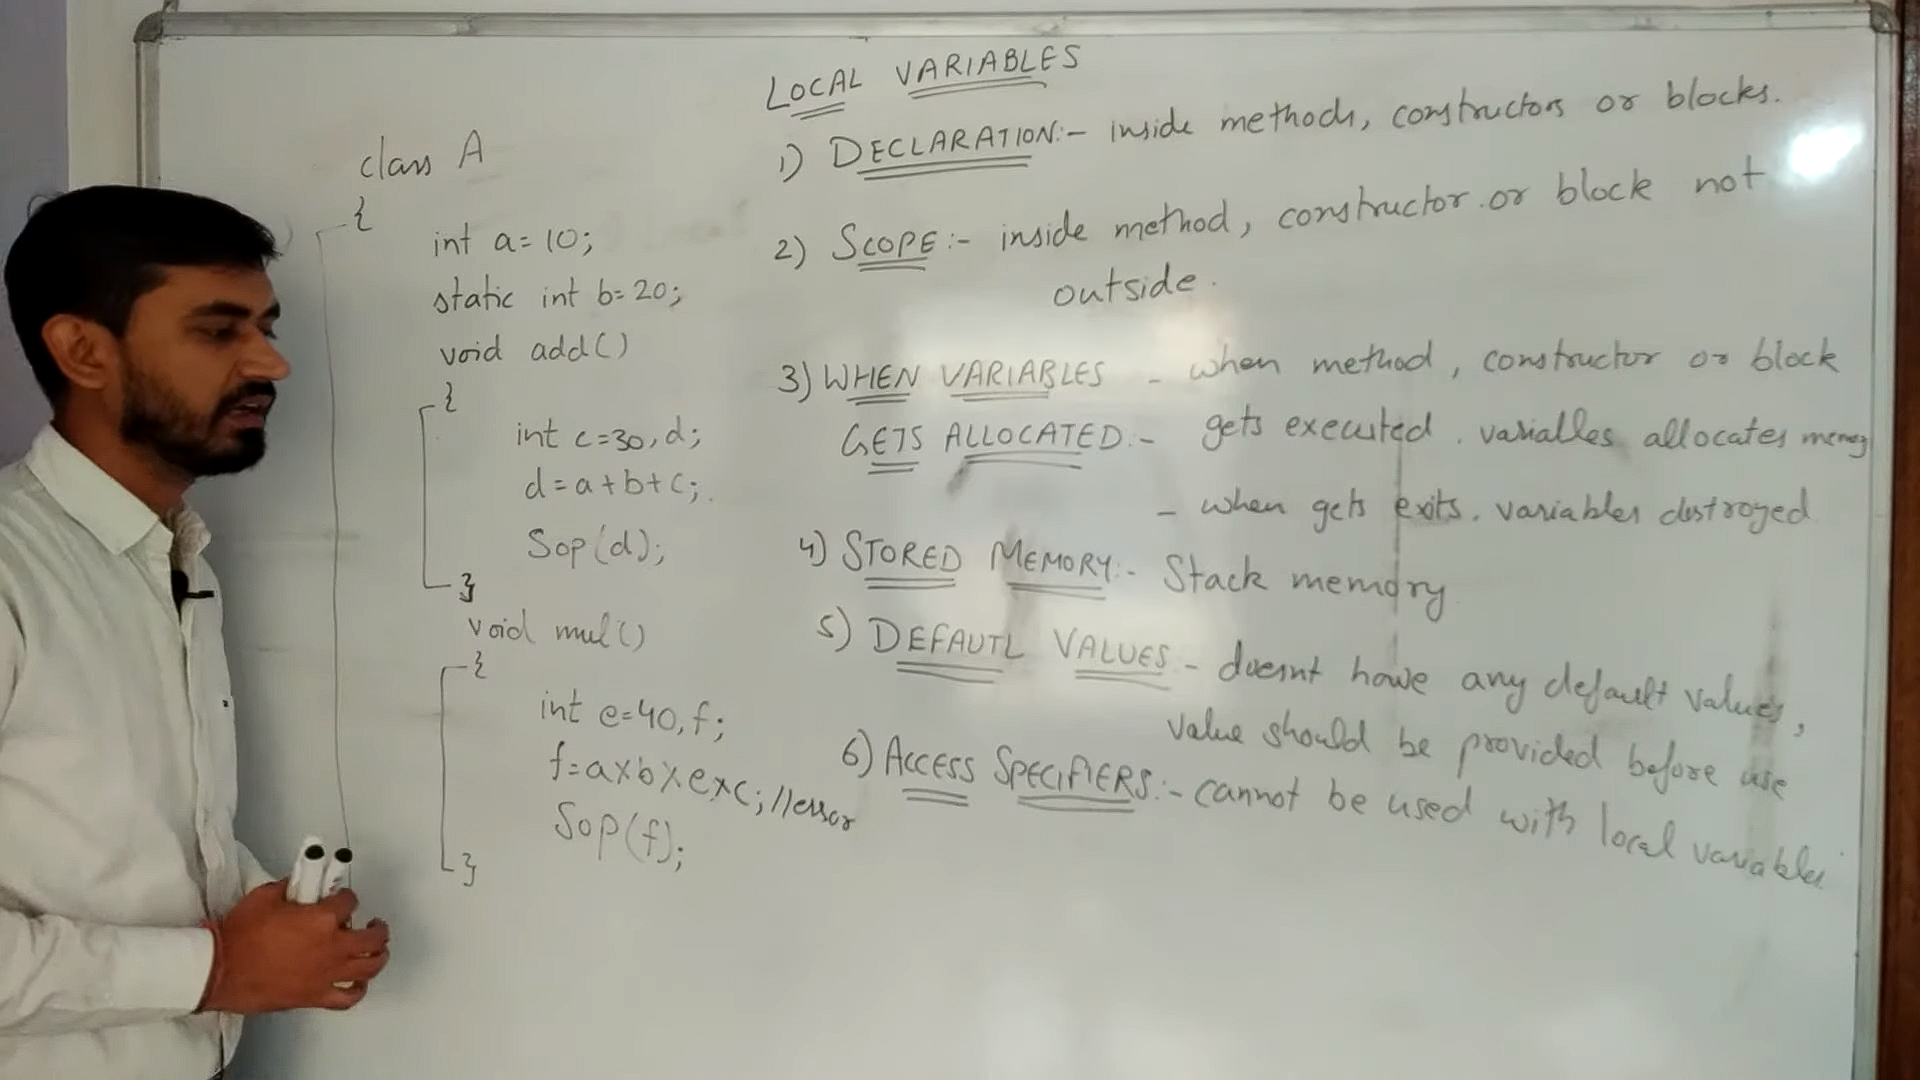 LOCAL VARIABLES
class A
{
int a=10;
static int b=20;
void add()
{
int c=30,d;
d=a+b+c;
Sop(d);
}
void mul()
{
int e=40,f;
f=a×b×e×c;//error
Sop(f);
}
1) DECLARATION:- inside methods, constructors or blocks.
2) SCOPE:- inside method, constructor or block not
outside.
3) WHEN VARIABLES - when method, constructor or block
GETS ALLOCATED:- gets executed. variables allocates memory
- when gets exits. variables destroyed
4) STORED MEMORY:- Stack memory
5) DEFAUTL VALUES - doesnt have any default values,
value should be provided before use
6) ACCESS SPECIFIERS:- cannot be used with local variables